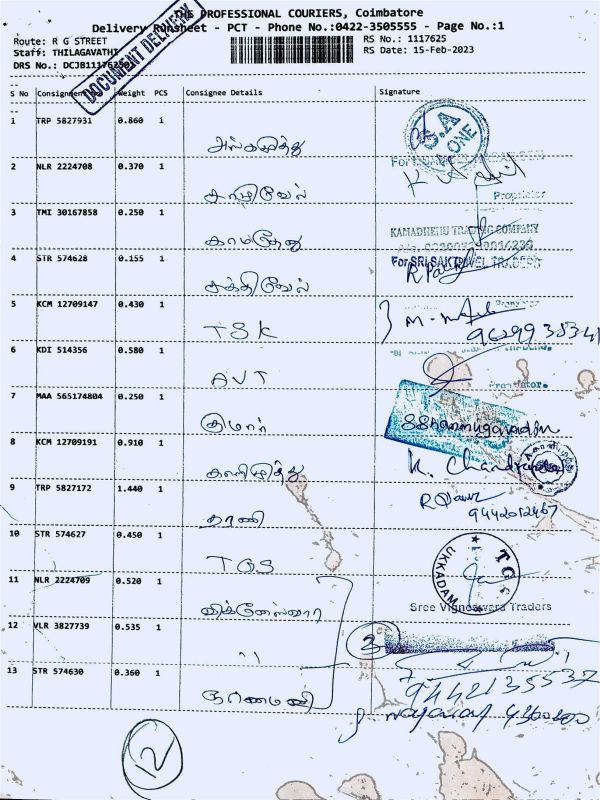 THE PROFESSIONAL COURIERS, Coimbatore
Delivery Runsheet - PCT - Phone No.:0422-3505555 - Page No.:1
Route: R G STREET
RS No.: 1117625
Staff: THILAGAVATHI
RS Date: 15-Feb-2023
DRS No.: DCJB111762501
DOCUMENT DELIVERY
S No Consignment Weight PCS Consignee Details Signature
1 TRP 5827931 0.860 1
S.A ONE
2 NLR 2224708 0.370 1 காழிவேல்
Proprietor
3 TMI 30167858 0.250 1 காமதேனு
KAMADHENU TRADING COMPANY
4 STR 574628 0.155 1 சக்திவேல்
For SRI SAKTHIVEL TRADERS
5 KCM 12709147 0.430 1 TSK
6 KDI 514356 0.580 1 AVT
Proprietor.
7 MAA 565174804 0.250 1 குமார்
8 KCM 12709191 0.910 1
K. Chandran
9 TRP 5827172 1.440 1 தரணி
9442012467
10 STR 574627 0.450 1 TGS
TGS UKKADAM
11 NLR 2224709 0.520 1 விக்னேஸ்வரா
Sree Vigneswara Traders
12 VLR 3827739 0.535 1 ''
3
13 STR 574630 0.360 1
9442135537
12